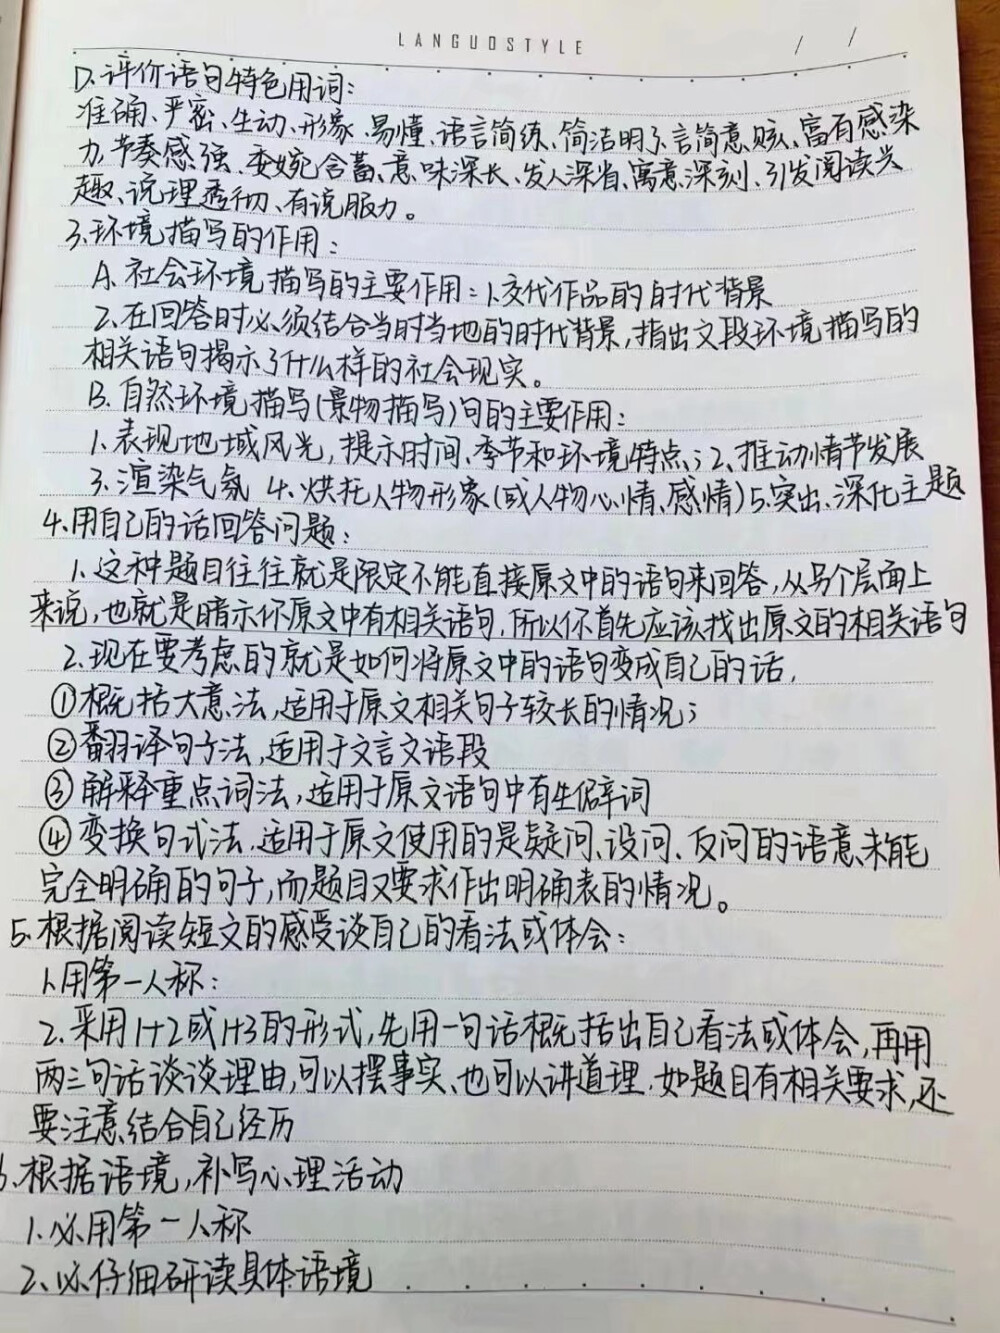 LANGUOSTYLE / /
D.评价语句特色用词:
准确、严密、生动、形象、易懂、语言简练、简洁明了、言简意赅、富有感染
力,节奏感强、委婉含蓄、意味深长、发人深省、寓意深刻、引发阅读兴
趣、说理透彻、有说服力。
3.环境描写的作用:
A.社会环境描写的主要作用:1.交代作品的时代背景
2.在回答时必须结合当时当地的时代背景,指出文段环境描写的
相关语句揭示了什么样的社会现实。
B.自然环境描写(景物描写)句的主要作用:
1.表现地域风光,提示时间、季节和环境特点;2、推动情节发展
3.渲染气氛 4.烘托人物形象(或人物心情、感情)5.突出、深化主题
4.用自己的话回答问题:
1.这种题目往往就是限定不能直接原文中的语句来回答,从另个层面上
来说,也就是暗示你原文中有相关语句,所以你首先应该找出原文的相关语句
2.现在要考虑的就是如何将原文中的语句变成自己的话,
①概括大意法,适用于原文相关句子较长的情况;
②翻译句子法,适用于文言文语段
③解释重点词法,适用于原文语句中有生僻词
④变换句式法,适用于原文使用的是疑问、设问、反问的语意未能
完全明确的句子,而题目又要求作出明确表的情况。
5.根据阅读短文的感受谈自己的看法或体会:
1.用第一人称:
2.采用1+2或1+3的形式,先用一句话概括出自己看法或体会,再用
两三句话谈谈理由,可以摆事实、也可以讲道理,如题目有相关要求,还
要注意结合自己经历
6.根据语境,补写心理活动
1.必用第一人称
2.必仔细研读具体语境